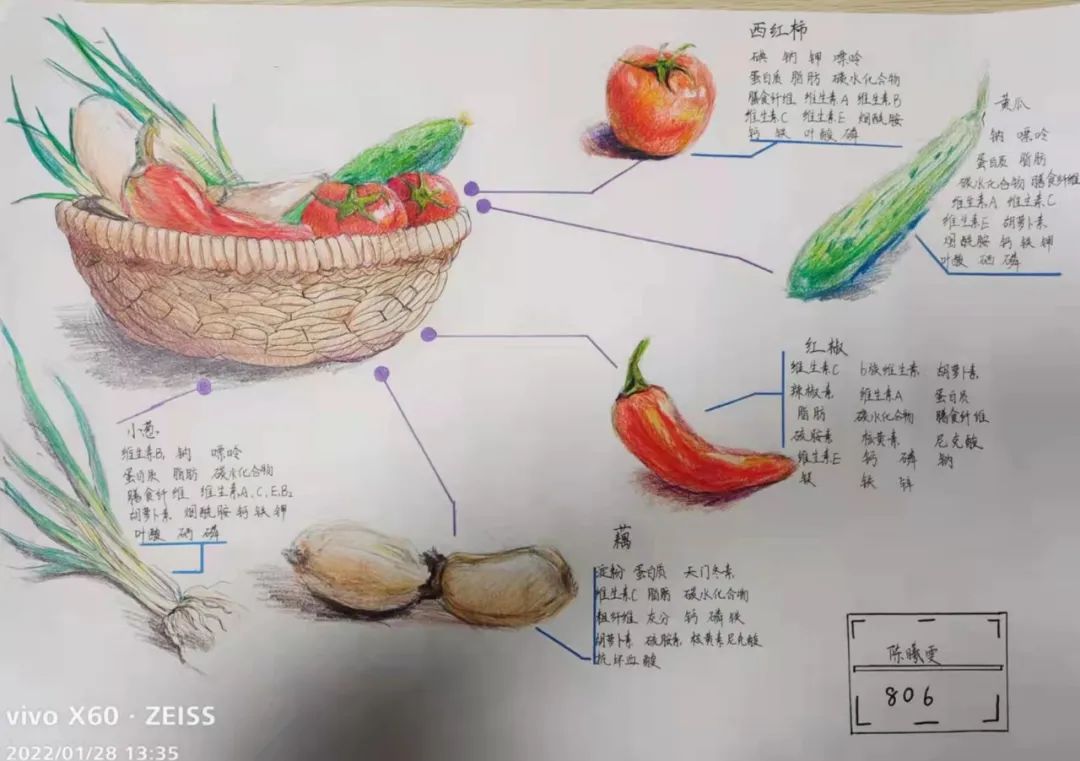 西红柿
碘 钠 钾 嘌呤
蛋白质 脂肪 碳水化合物
膳食纤维 维生素A 维生素B
维生素C 维生素E 烟酰胺
钙 铁 叶酸 磷
黄瓜
钠 嘌呤
蛋白质 脂肪
碳水化合物 膳食纤维
维生素A 维生素C
维生素E 胡萝卜素
烟酰胺 钙 铁 钾
叶酸 硒 磷
红椒
维生素C b族维生素 胡萝卜素
辣椒素 维生素A 蛋白质
脂肪 碳水化合物 膳食纤维
硫胺素 核黄素 尼克酸
维生素E 钙 磷 钠
镁 铁 锌
小葱
维生素B₁ 钠 嘌呤
蛋白质 脂肪 碳水化合物
膳食纤维 维生素A、C、E、B₂
胡萝卜素 烟酰胺 钙 铁 钾
叶酸 硒 磷
藕
淀粉 蛋白质 天门冬素
维生素C 脂肪 碳水化合物
粗纤维 灰分 钙 磷 铁
胡萝卜素 硫胺素 核黄素 尼克酸
抗坏血酸
陈曦雯
806
vivo X60 · ZEISS
2022/01/28 13:35